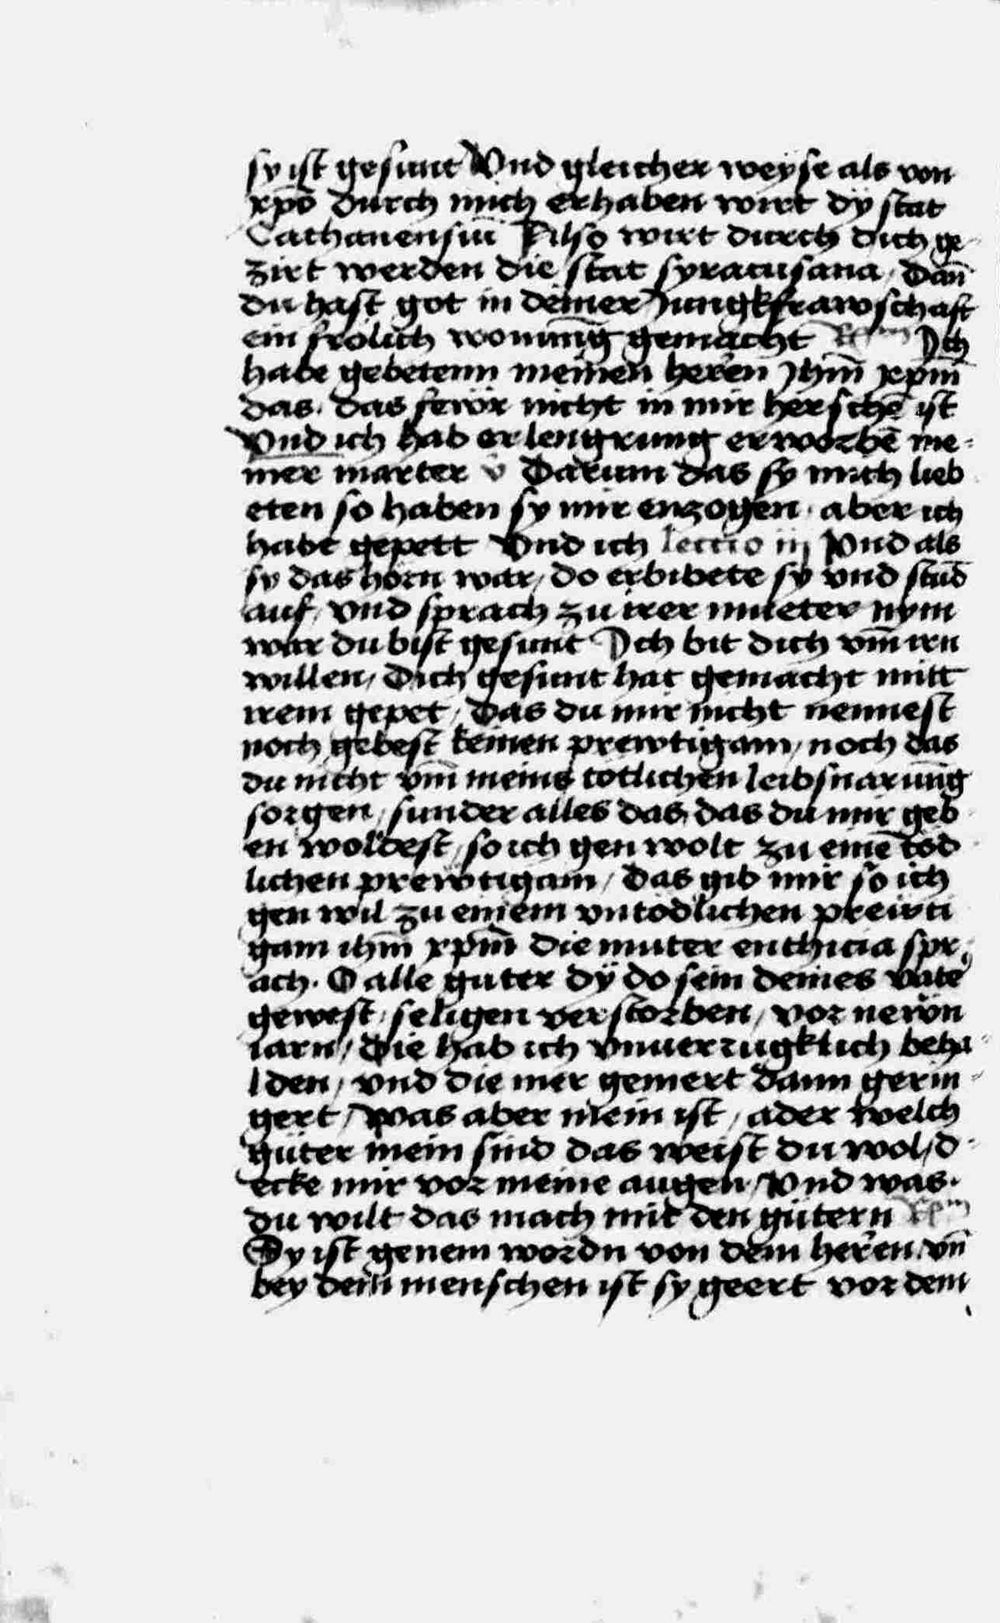 sy ist gesunt Vnd gleicher weyse als von
xpō durch mich erhaben wirt dÿ stat
Cathanensiū Also wirt durch dich ge-
zirt werden die stat syracusana, Dan̄
du hast got in deiner Jungkfrawschaft
ein frölich wonūng gemacht Rm̄ Ich
habe gebetenn meinen herren Jhm̄ xpm̄
das, das fewr nicht in mir herschē ist
Vnd ich hab erlengrung erworbē me-
iner marter v̄ Darum das sy mich lieb
eten so haben sy mir enzogen, aber ich
habe gepett Vnd ich lectio iij Vnd als
sy das hörn war, do erbibete sy vnd stūd
auf, vnd sprach zu irer mueter nym
war du bist gesunt Ich bit dich vm̄ irn
willen, Dich gesunt hat gemacht mitt
irem gepet, Das du mir nicht nennest
noch gebest keinen prewtigam, noch das
du nicht vm̄ meins tötlichen leibs narūng
sorgen, sunder alles das, das du mir geb
en woldest, so ich gen wolt zu einē töd
lichen prewtigam, das gib mir so ich
gen wil zu einem vntödlichen prewti
gam ihm̄ xpm̄ die muter euthicia spr
ach. O alle guter dÿ do sein deines vate
gewest, seligen verstorben, vor newn
iarn, Die hab ich vnuerzugklich beha-
lden, vnd die mer gemert dann gerin-
gert, was aber mein ist, ader welch
güter mein sind das weist du wol, d-
ecke mir vor meine augen, Vnd was
du wilt das mach mit den gütern Rm̄
Sy ist genem wordn von dem herren, vn̄
bey dem menschen ist sy geert vor dem